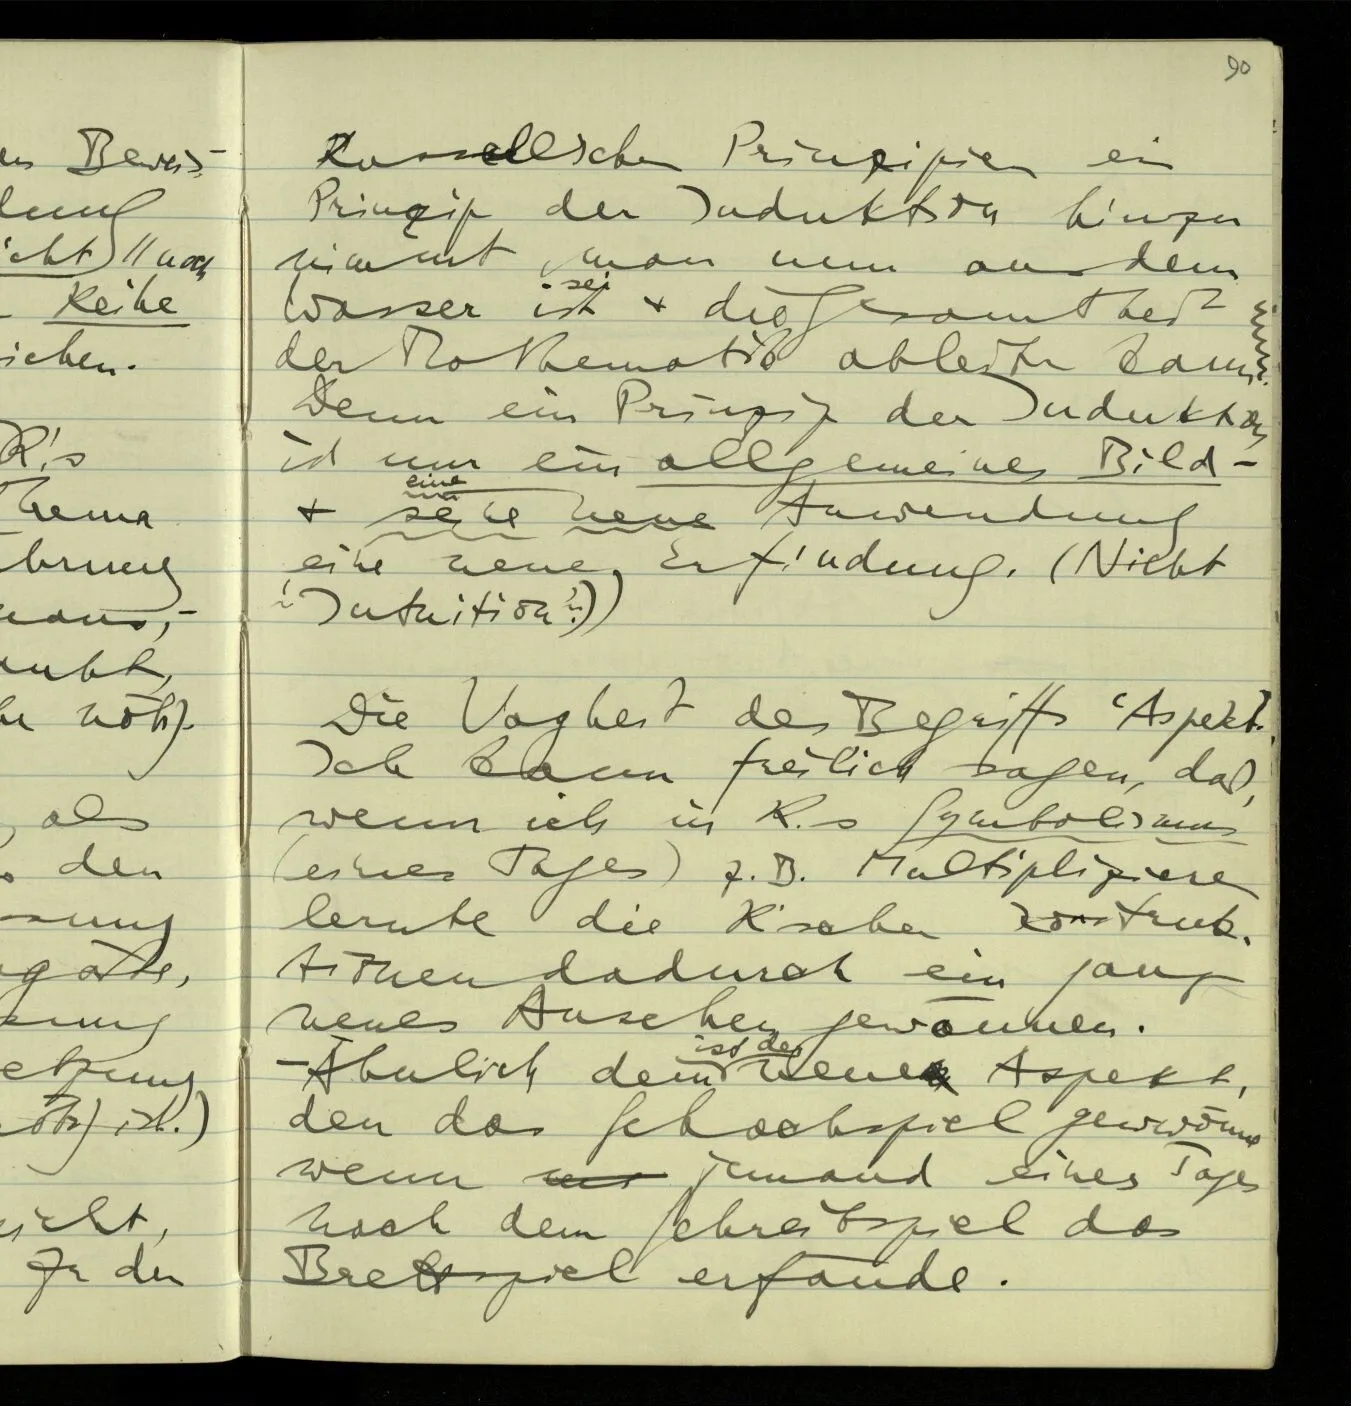 90
en Beweis-
dung
icht) // noch
Reihe
ichen.
R's
Thema
hrung
naus,-
aubt,
als
den
ssung
etzung
icht,
zu den
Russellschen Prinzipien ein
Prinzip der Induktion hinzu
nimmt man nun aus dem
sei
Wasser ist + die Gesamtheit
der Mathematik ableiten kann.
Denn ein Prinzip der Induktion
ist nur ein allgemeines Bild -
eine
+ seine neue Anwendung
eine neue Erfindung. (Nicht
'Intuition'.))
Die Vagheit des Begriffs 'Aspekt'.
Ich kann freilich sagen, daß,
wenn ich in R.s Symbolismus
(eines Tages) z.B. Multiplizieren
lernte die R'schen Konstruk-
tionen dadurch ein ganz
neues Ansehen gewönnen.
ist der
- Ähnlich dem neuen Aspekt,
den das Schachspiel gewönne
wenn jemand eines Tages
nach dem Schreibspiel das
Brettspiel erfände.